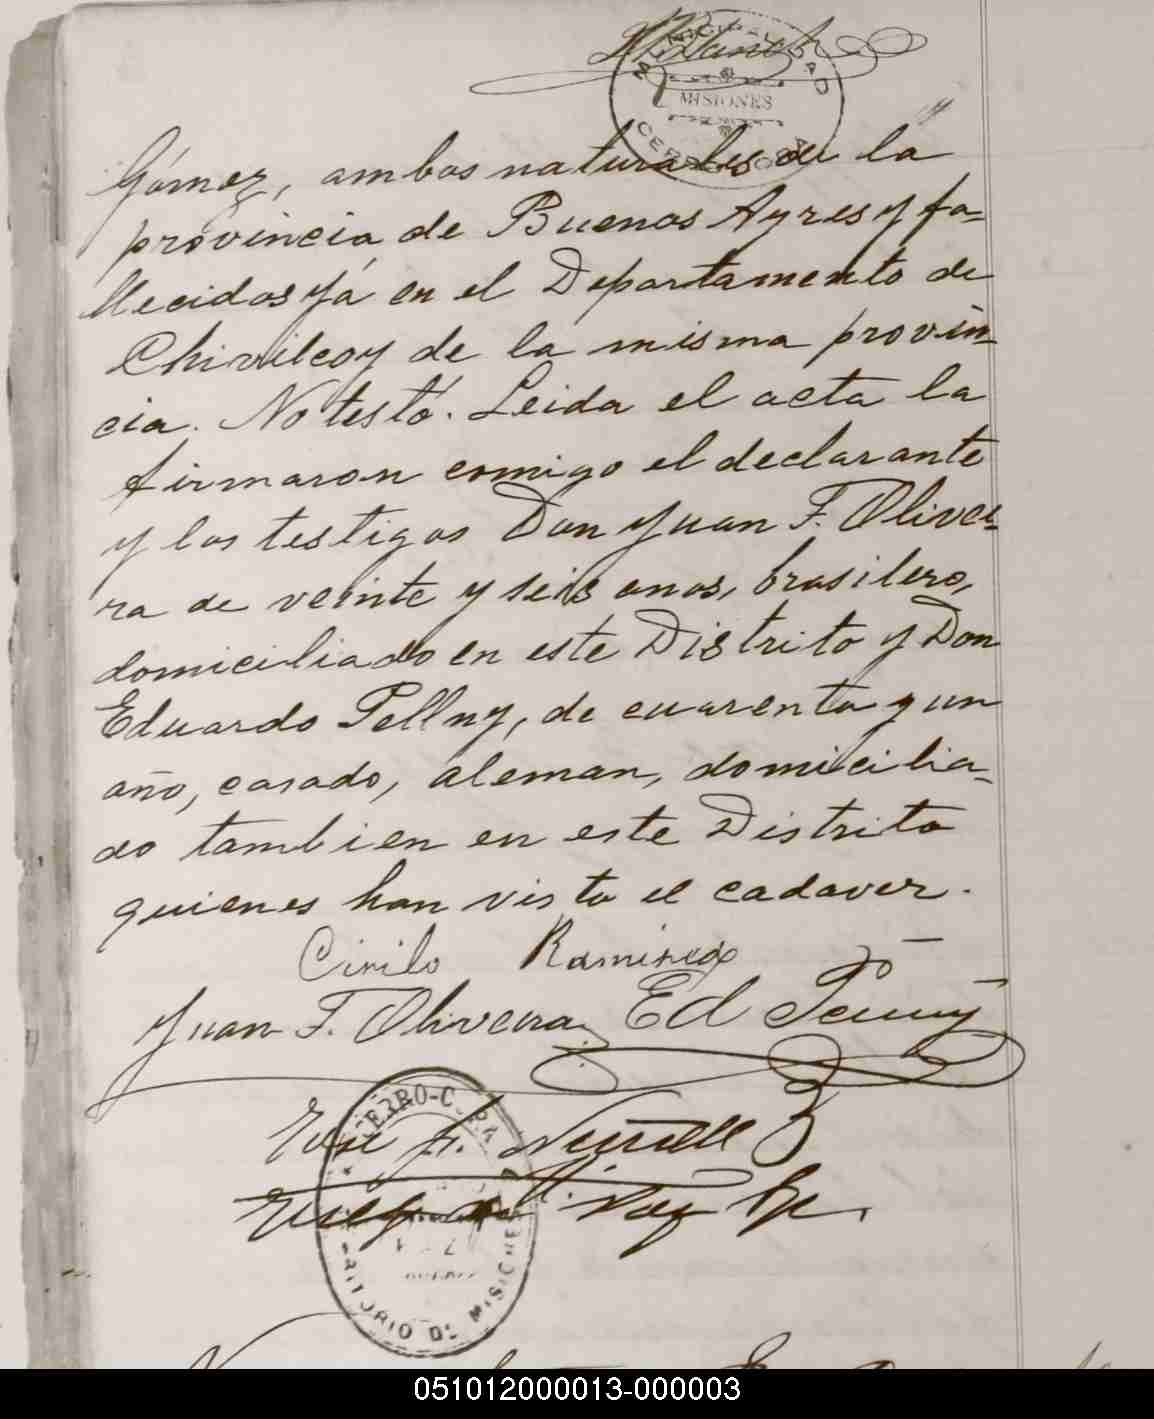 MUNICIPALIDAD
MISIONES
CERRO-CORÁ
Gómez, ambos naturales de la
provincia de Buenos Ayres y fa-
llecidos yá en el Departamento de
Chivilcoy de la misma provin-
cia. No testó. Leida el acta la
firmaron comigo el declarante
y los testigos Don Juan F. Olivei-
ra de veinte y seis anos, brasilero,
domiciliado en este Distrito y Don
Eduardo Pellny, de cuarenta y un
año, casado, aleman, domicilia-
do tambien en este Distrito
quienes han visto el cadaver.
Cirilo Ramirez
Juan F. Oliveira Ed
CERRO-CORÁ
TERRITORIO DE MISIONES
051012000013-000003